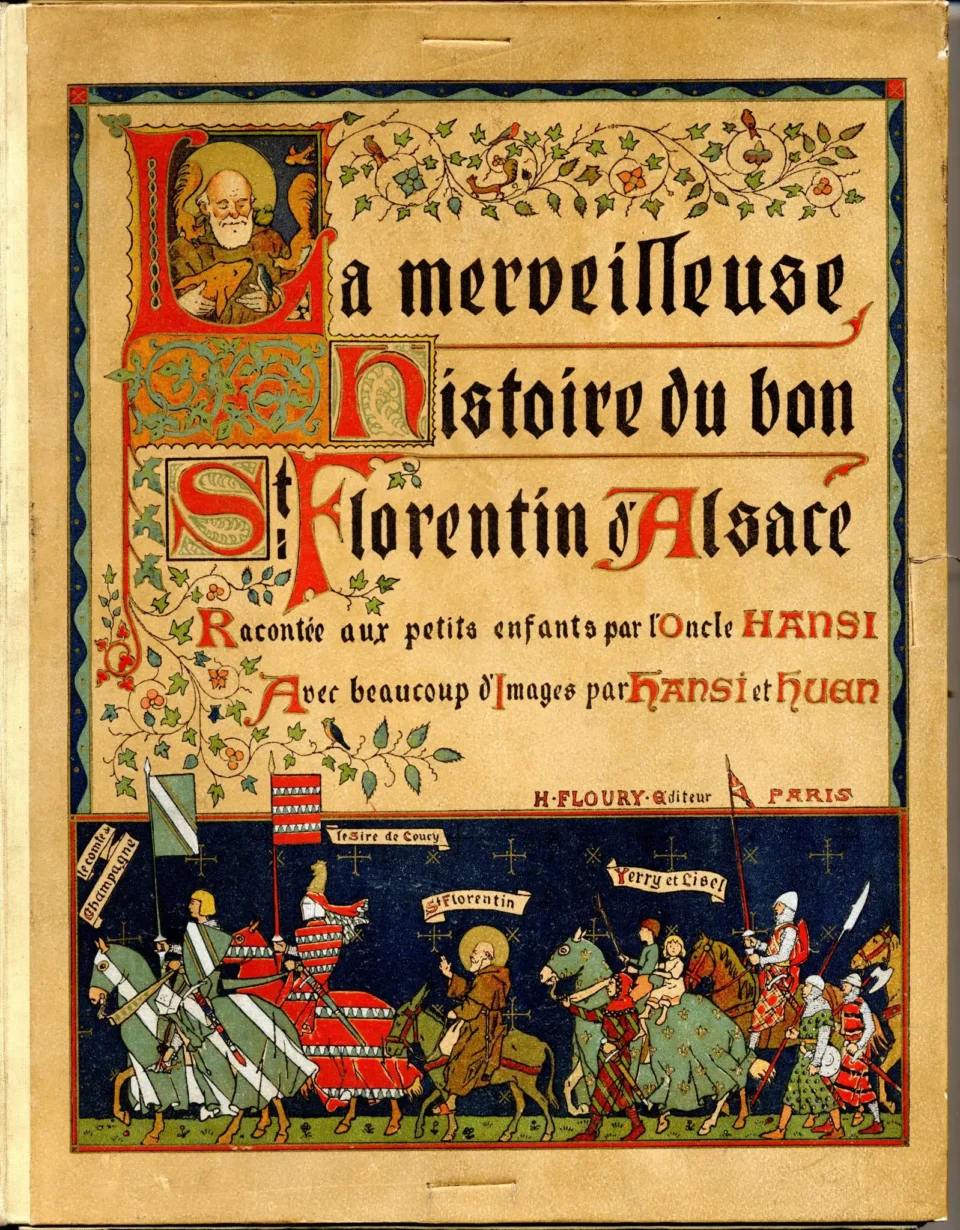 La merveilleuse
histoire du bon
St Florentin d'Alsace
Racontée aux petits enfants par l'Oncle HANSI
Avec beaucoup d'Images par HANSI et HUEN
H·FLOURY·Editeur PARIS
le comte de Champagne
le Sire de Coucy
St Florentin
Yerry et Lisel